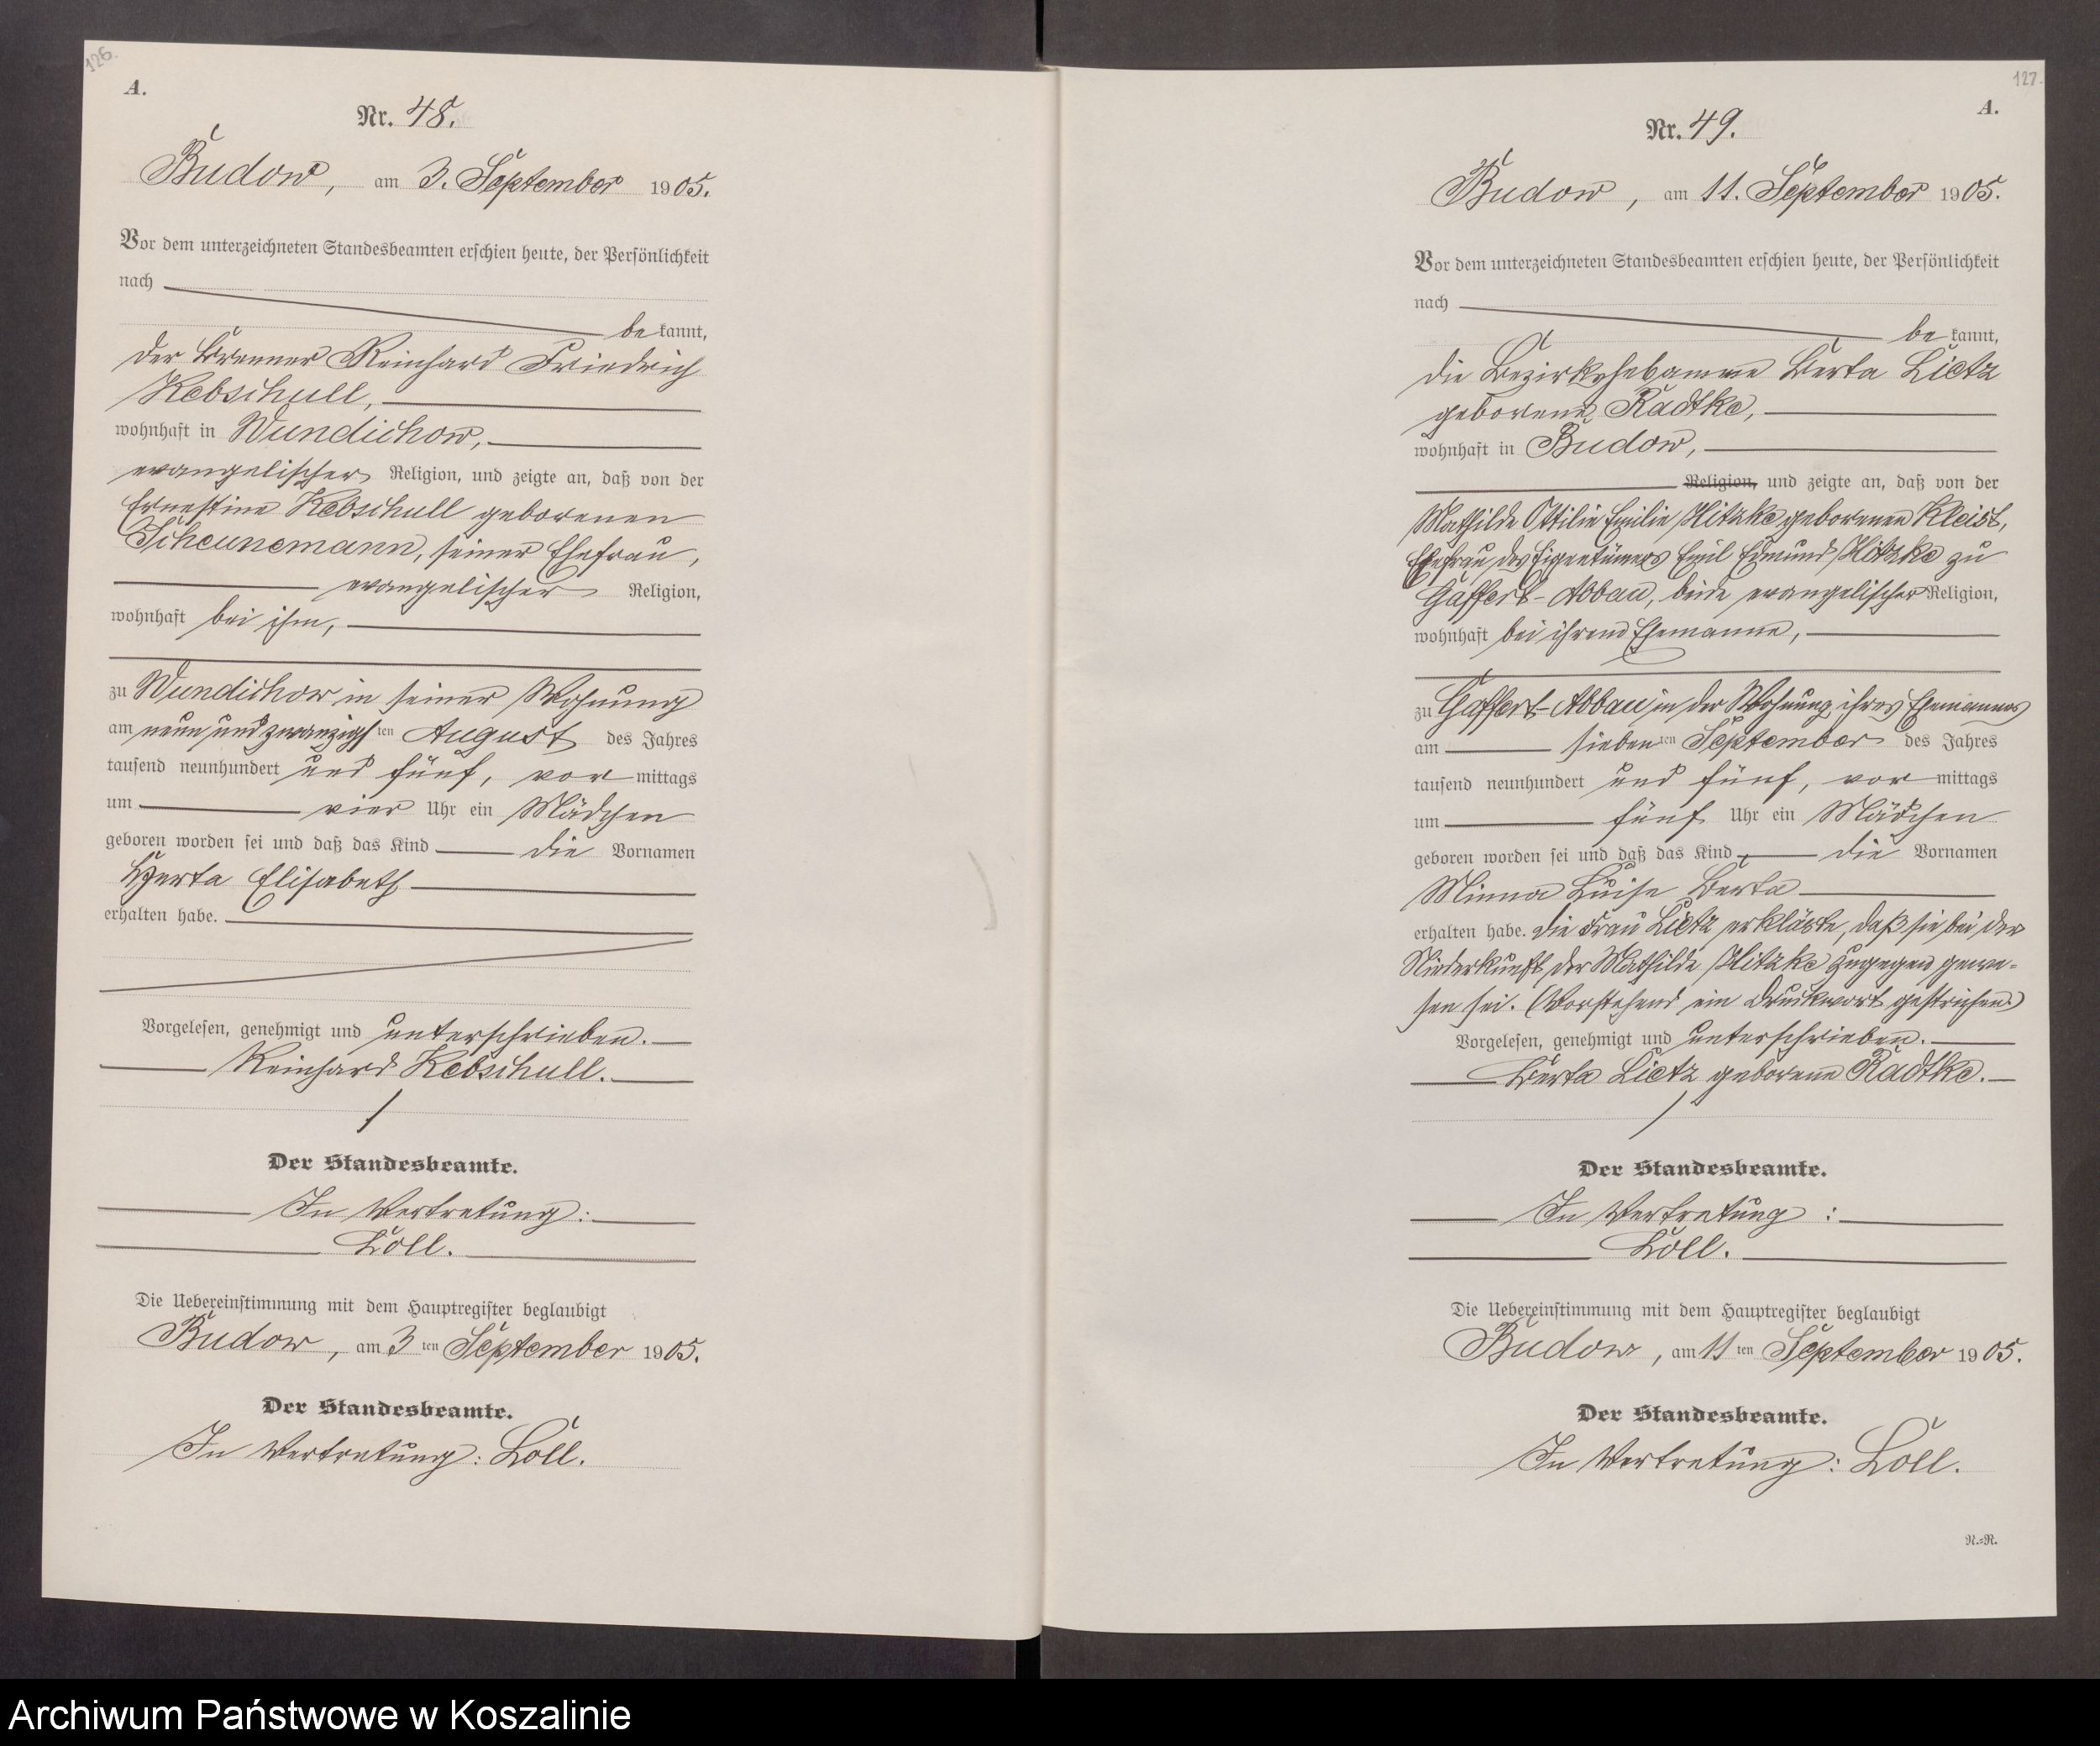 126.
A.
Nr. 48.
Budow, am 3. September 1905.
Vor dem unterzeichneten Standesbeamten erschien heute, der Persönlichkeit
nach
be kannt,
der Brenner Reinhard Friedrich
Kebschull,
wohnhaft in Wundichow,
evangelischer Religion, und zeigte an, daß von der
Ernestine Kebschull geborenen
Scheunemann, seiner Ehefrau,
evangelischer Religion,
wohnhaft bei ihm,
zu Wundichow in seiner Wohnung
am neun und zwanzigsten August des Jahres
tausend neunhundert und fünf, vor mittags
um vier Uhr ein Mädchen
geboren worden sei und daß das Kind die Vornamen
Herta Elisabeth
erhalten habe.
Vorgelesen, genehmigt und unterschrieben.
Reinhard Kebschull.
Der Standesbeamte.
In Vertretung:
Löll.
Die Uebereinstimmung mit dem Hauptregister beglaubigt
Budow, am 3 ten September 1905.
Der Standesbeamte.
In Vertretung: Löll.
127.
A.
Nr. 49.
Budow, am 11. September 1905.
Vor dem unterzeichneten Standesbeamten erschien heute, der Persönlichkeit
nach
be kannt,
die Bezirkshebamme Berta Lietz
geborene Radtke,
wohnhaft in Budow,
Religion, und zeigte an, daß von der
Mathilde Ottilie Emilie geborenen Kleist,
Ehefrau des Eigentümers Emil Edmund zu
Gaffert-Abbau, beide evangelischer Religion,
wohnhaft bei ihrem Ehemanne,
zu Gaffert-Abbau in der Wohnung ihres Ehemannes
am sieben ten September des Jahres
tausend neunhundert und fünf, vor mittags
um fünf Uhr ein Mädchen
geboren worden sei und daß das Kind die Vornamen
Minna Luise Berta
erhalten habe. Die Frau Lietz erklärte, daß sie bei der
Niederkunft der Mathilde zugegen gewe-
sen sei. (Vorstehend ein Druckwort gestrichen.)
Vorgelesen, genehmigt und unterschrieben.
Berta Lietz geborene Radtke.
Der Standesbeamte.
In Vertretung :
Löll.
Die Uebereinstimmung mit dem Hauptregister beglaubigt
Budow, am 11 ten September 1905.
Der Standesbeamte.
In Vertretung: Löll.
R.-R.
Archiwum Państwowe w Koszalinie